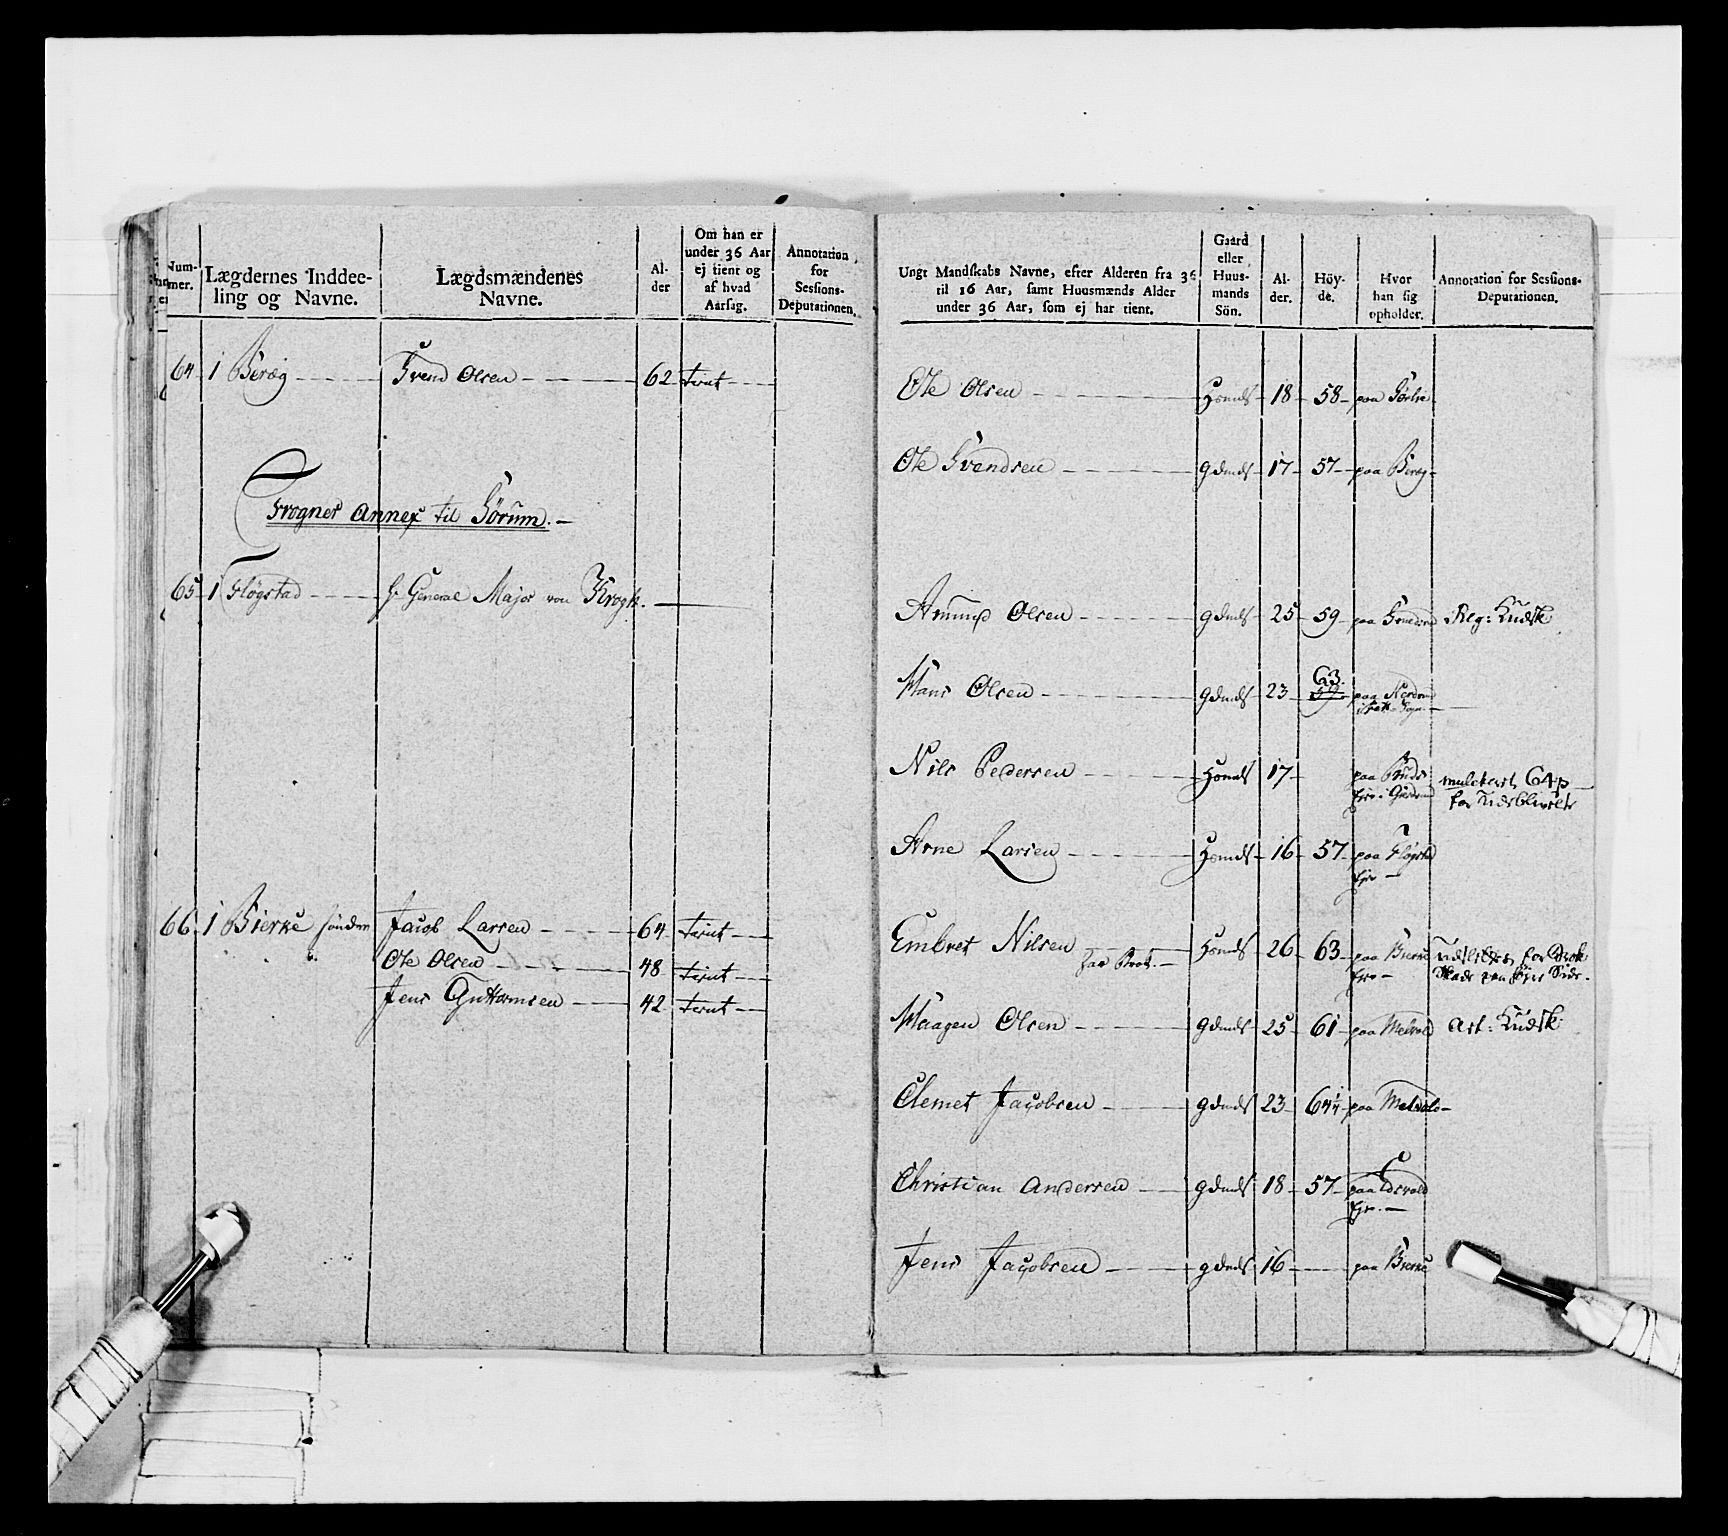 Num-
mer.
Lægdernes Inddee-
ling og Navne.
Lægdsmændenes
Navne.
Al-
der
Om han er
under 36 Aar
ej tient og
af hvad
Aarsag.
Annotation
for
Sessions-
Deputationen.
64 1 Beræg Svend Olsen 62 tient
Frogner Annex til Sørum.
65 1 Fløgstad Hr General Major von Krogh.
66 1 Bierke sønder Jacob Larsen 64 tient
Ole Olsen 48 tient
Jens Guttormsen 42 tient
Ungt Mandskabs Navne, efter Alderen fra 36
til 16 Aar, samt Huusmænds Alder
under 36 Aar, som ej har tient.
Gaard
eller
Huus-
mands
Sön.
Al-
der.
Höy-
de.
Hvor
han sig
opholder.
Annotation for Sessions-
Deputationen.
Ole Olsen 18 58 paa
Ole Svendsen gdmds 17 57 paa Beræg
Amund Olsen gdmds 25 59 paa Reg: Kudsk
Hans Olsen gdmds 23 63 59 paa
Nils Pedersen 17 paa mulcteret 64 p
for Udeblivelse
Arne Larsen 16 57 paa Fløgstad
Eje
Embret Nilsen 26 63 paa Bierke
har Brok. Eje
Haagen Olsen gdmds 25 61 paa Melvold Art: Kudsk
Clemet Jacobsen gdmds 23 64 1/4 paa Melvold
Christian Andersen gdmds 18 57 paa Edsvold
Eje
Jens Jacobsen gdmds 16 paa Bierke